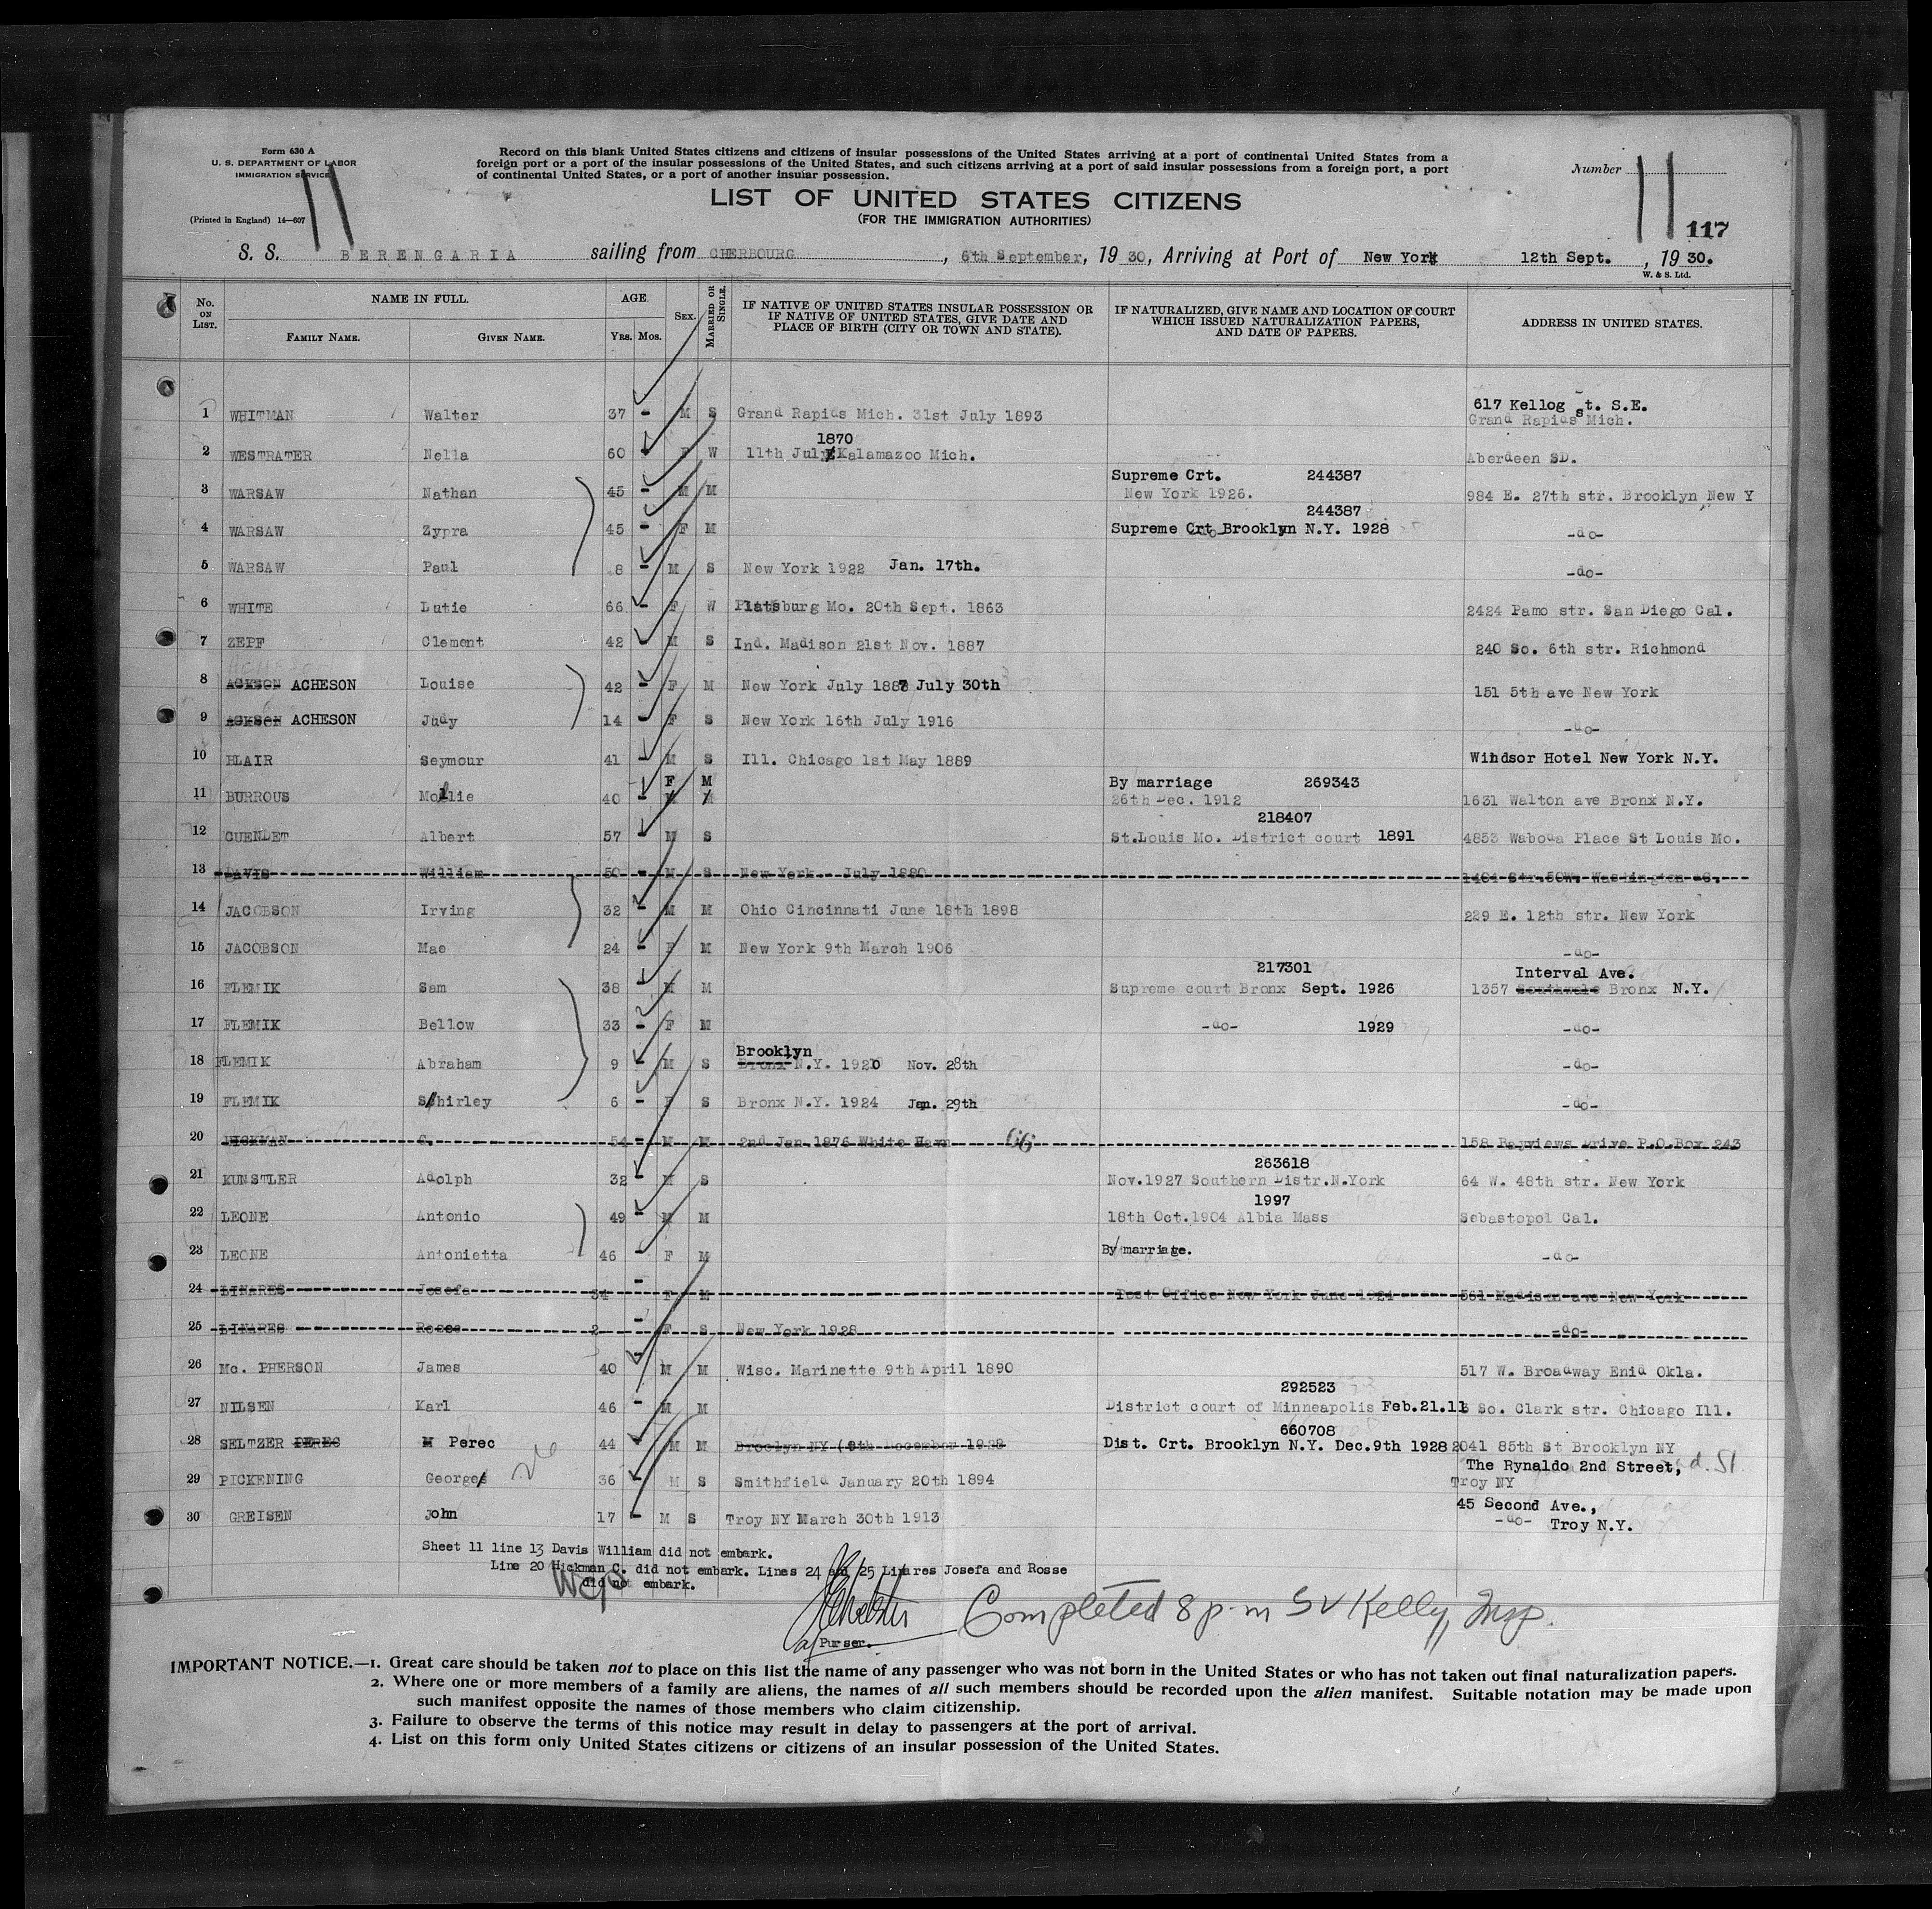 Form 630 A
U. S. DEPARTMENT OF LABOR
IMMIGRATION SERVICE
(Printed in England) 14—607
Record on this blank United States citizens and citizens of insular possessions of the United States arriving at a port of continental United States from a
foreign port or a port of the insular possessions of the United States, and such citizens arriving at a port of said insular possessions from a foreign port, a port
of continental United States, or a port of another insular possession.
Number 11
11
117
LIST OF UNITED STATES CITIZENS
(FOR THE IMMIGRATION AUTHORITIES)
S. S. BERENGARIA sailing from CHERBOURG, 6th September, 1930, Arriving at Port of New York 12th Sept., 1930.
W. & S. Ltd.
No. ON LIST. NAME IN FULL. FAMILY NAME. GIVEN NAME. AGE. YRS. MOS. SEX. MARRIED OR SINGLE. IF NATIVE OF UNITED STATES INSULAR POSSESSION OR IF NATIVE OF UNITED STATES, GIVE DATE AND PLACE OF BIRTH (CITY OR TOWN AND STATE). IF NATURALIZED, GIVE NAME AND LOCATION OF COURT WHICH ISSUED NATURALIZATION PAPERS, AND DATE OF PAPERS. ADDRESS IN UNITED STATES.
1 WHITMAN Walter 37 - M S Grand Rapids Mich. 31st July 1893 617 Kellog st. S.E. Grand Rapids Mich.
2 WESTRATER Nella 60 - F W 11th July 1870 Kalamazoo Mich. Aberdeen SD.
3 WARSAW Nathan 45 - M M Supreme Crt. 244387 New York 1926. 984 E. 27th str. Brooklyn New Y
4 WARSAW Zypra 45 - F M 244387 Supreme Crt Brooklyn N.Y. 1928 -do-
5 WARSAW Paul 8 - M S New York 1922 Jan. 17th. -do-
6 WHITE Lutie 66 - F W Platsburg Mo. 20th Sept. 1863 2424 Pamo str. San Diego Cal.
7 ZEPF Clement 42 - M S Ind. Madison 21st Nov. 1887 240 So. 6th str. Richmond
8 ACKSON ACHESON Louise 42 - F M New York July 1887 July 30th 151 5th ave New York
9 ACKSON ACHESON Judy 14 - F S New York 16th July 1916 -do-
10 BLAIR Seymour 41 - M S Ill. Chicago 1st May 1889 Windsor Hotel New York N.Y.
11 BURROUS Mollie 40 - F M By marriage 269343 26th Dec. 1912 1631 Walton ave Bronx N.Y.
12 CUENDET Albert 57 - M S 218407 St.Louis Mo. District court 1891 4853 Waboda Place St Louis Mo.
13 DAVIS William 50 - M S New York. July 1880 1404 Str.50W. Washington
14 JACOBSON Irving 32 - M M Ohio Cincinnati June 18th 1898 229 E. 12th str. New York
15 JACOBSON Mae 24 - F M New York 9th March 1906 -do-
16 FLEMIK Sam 38 - M M 217301 Supreme court Bronx Sept. 1926 Interval Ave. 1357 Bronx N.Y.
17 FLEMIK Bellow 33 - F M -do- 1929 -do-
18 FLEMIK Abraham 9 - M S Brooklyn Bronx N.Y. 1920 Nov. 28th -do-
19 FLEMIK Shirley 6 - F S Bronx N.Y. 1924 Jan. 29th -do-
20 HICKMAN C. 54 - M M 2nd Jan 1876 White Havn 66 158 Bayviews Drive P.O.Box 243
21 KUNSTLER Adolph 32 - M S 263618 Nov.1927 Southern Distr.N.York 64 W. 48th str. New York
22 LEONE Antonio 49 - M M 1997 18th Oct.1904 Albia Mass Sebastopol Cal.
23 LEONE Antonietta 46 - F M By marriage. -do-
24 LINARES Josefa 34 - F M Post Office New York June 1924 561 Madison ave New York
25 LINARES Rosse 2 - F S New York 1928 -do-
26 Mc. PHERSON James 40 - M M Wisc. Marinette 9th April 1890 517 W. Broadway Enid Okla.
27 NILSEN Karl 46 - M M 292523 District court of Minneapolis Feb.21.11 So. Clark str. Chicago Ill.
28 SELTZER PEREC M Perec 44 - M M Broclyn NY (8th December 1928 660708 Dist. Crt. Brooklyn N.Y. Dec.9th 1928 2041 85th St Brooklyn NY
29 PICKENING George 36 - M S Smithfield January 20th 1894 The Rynaldo 2nd Street, Troy NY
30 GREISEN John 17 - M S Troy NY March 30th 1913 45 Second Ave., -do- Troy N.Y.
Sheet 11 line 13 Davis William did not embark.
Line 20 Hickman C. did not embark. Lines 24 and 25 Linares Josefa and Rosse
did not embark.
Purser.
Completed 8 p-m S V Kelly, Insp.
IMPORTANT NOTICE.—1. Great care should be taken not to place on this list the name of any passenger who was not born in the United States or who has not taken out final naturalization papers.
2. Where one or more members of a family are aliens, the names of all such members should be recorded upon the alien manifest. Suitable notation may be made upon
such manifest opposite the names of those members who claim citizenship.
3. Failure to observe the terms of this notice may result in delay to passengers at the port of arrival.
4. List on this form only United States citizens or citizens of an insular possession of the United States.